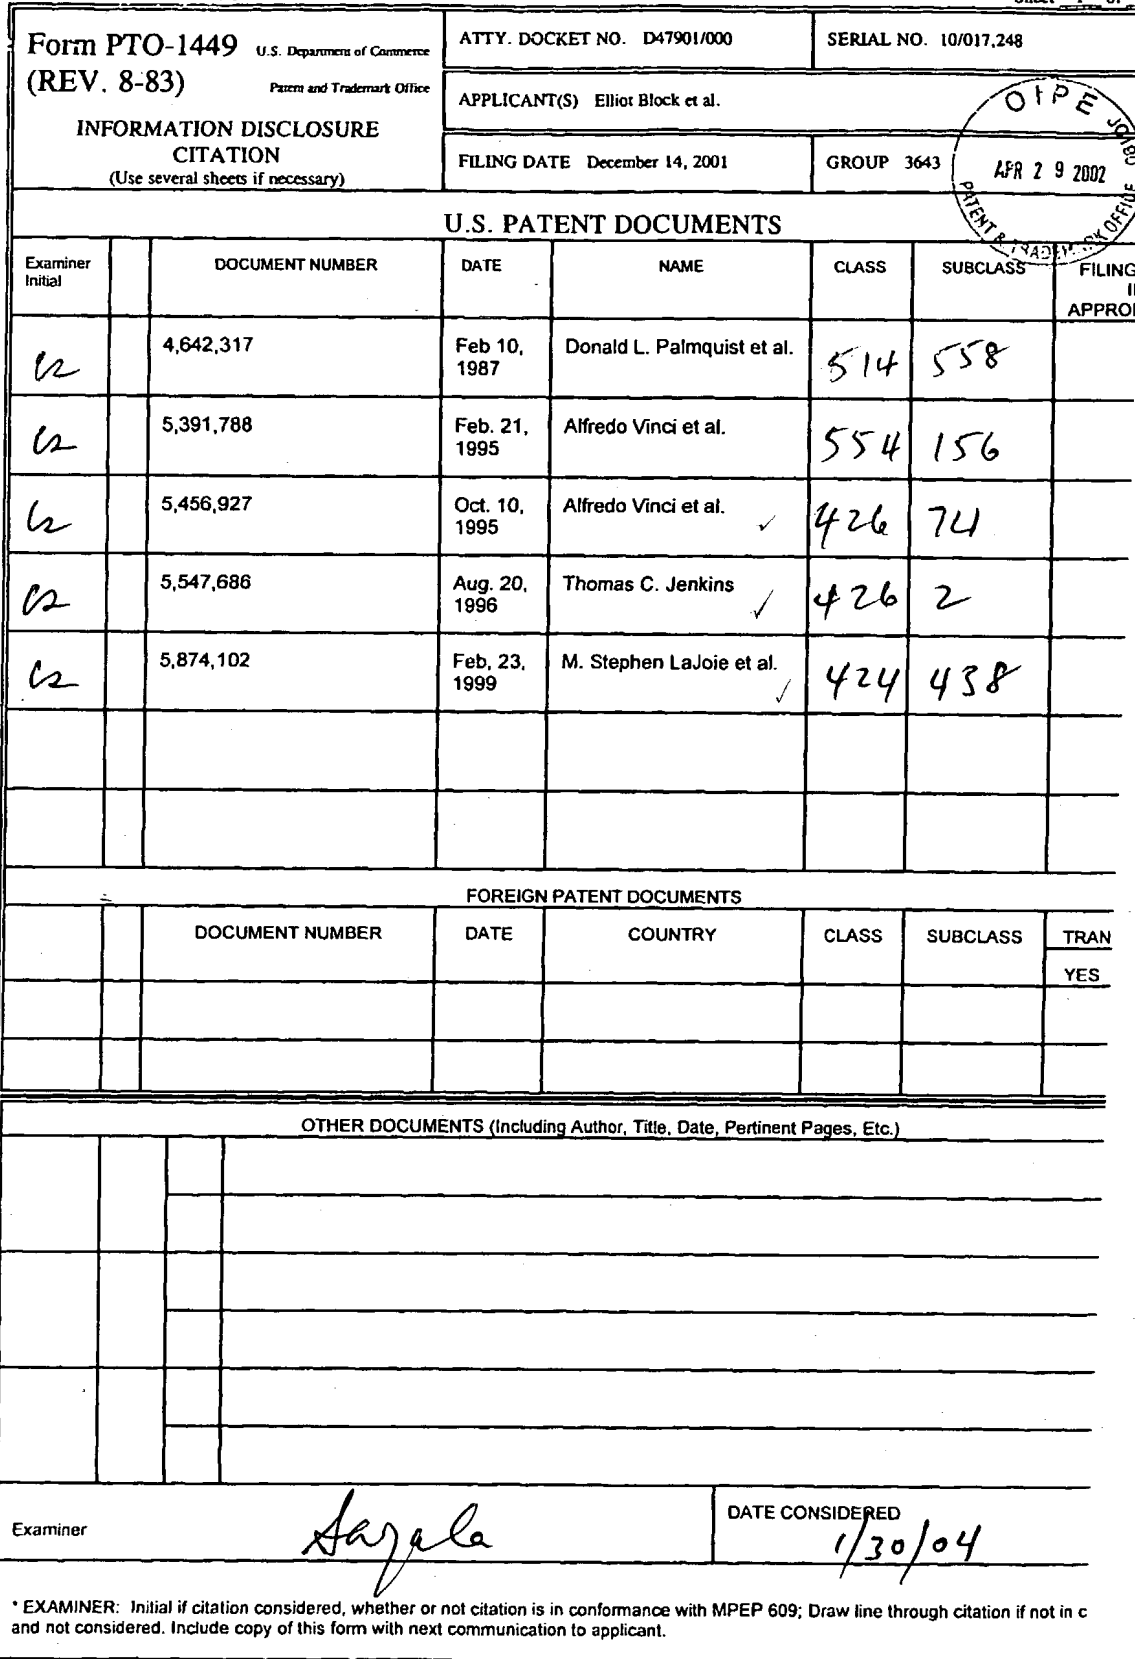 Form PTO-1449 U.S. Department of Commerce
(REV. 8-83) Patent and Trademark Office
INFORMATION DISCLOSURE
CITATION
(Use several sheets if necessary)
ATTY. DOCKET NO. D47901/000
SERIAL NO. 10/017,248
APPLICANT(S) Elliot Block et al.
FILING DATE December 14, 2001
GROUP 3643
OIPE
APR 29 2002
PATENT & TRADEMARK OFFICE
U.S. PATENT DOCUMENTS
Examiner
Initial
DOCUMENT NUMBER
DATE
NAME
CLASS
SUBCLASS
FILING
APPRO
4,642,317
Feb 10,
1987
Donald L. Palmquist et al.
514
558
5,391,788
Feb. 21,
1995
Alfredo Vinci et al.
554
156
5,456,927
Oct. 10,
1995
Alfredo Vinci et al. ✓
426
74
5,547,686
Aug. 20,
1996
Thomas C. Jenkins ✓
426
2
5,874,102
Feb, 23,
1999
M. Stephen LaJoie et al. ✓
424
438
FOREIGN PATENT DOCUMENTS
DOCUMENT NUMBER
DATE
COUNTRY
CLASS
SUBCLASS
TRAN
YES
OTHER DOCUMENTS (Including Author, Title, Date, Pertinent Pages, Etc.)
Examiner
DATE CONSIDERED
1/30/04
* EXAMINER: Initial if citation considered, whether or not citation is in conformance with MPEP 609; Draw line through citation if not in c
and not considered. Include copy of this form with next communication to applicant.